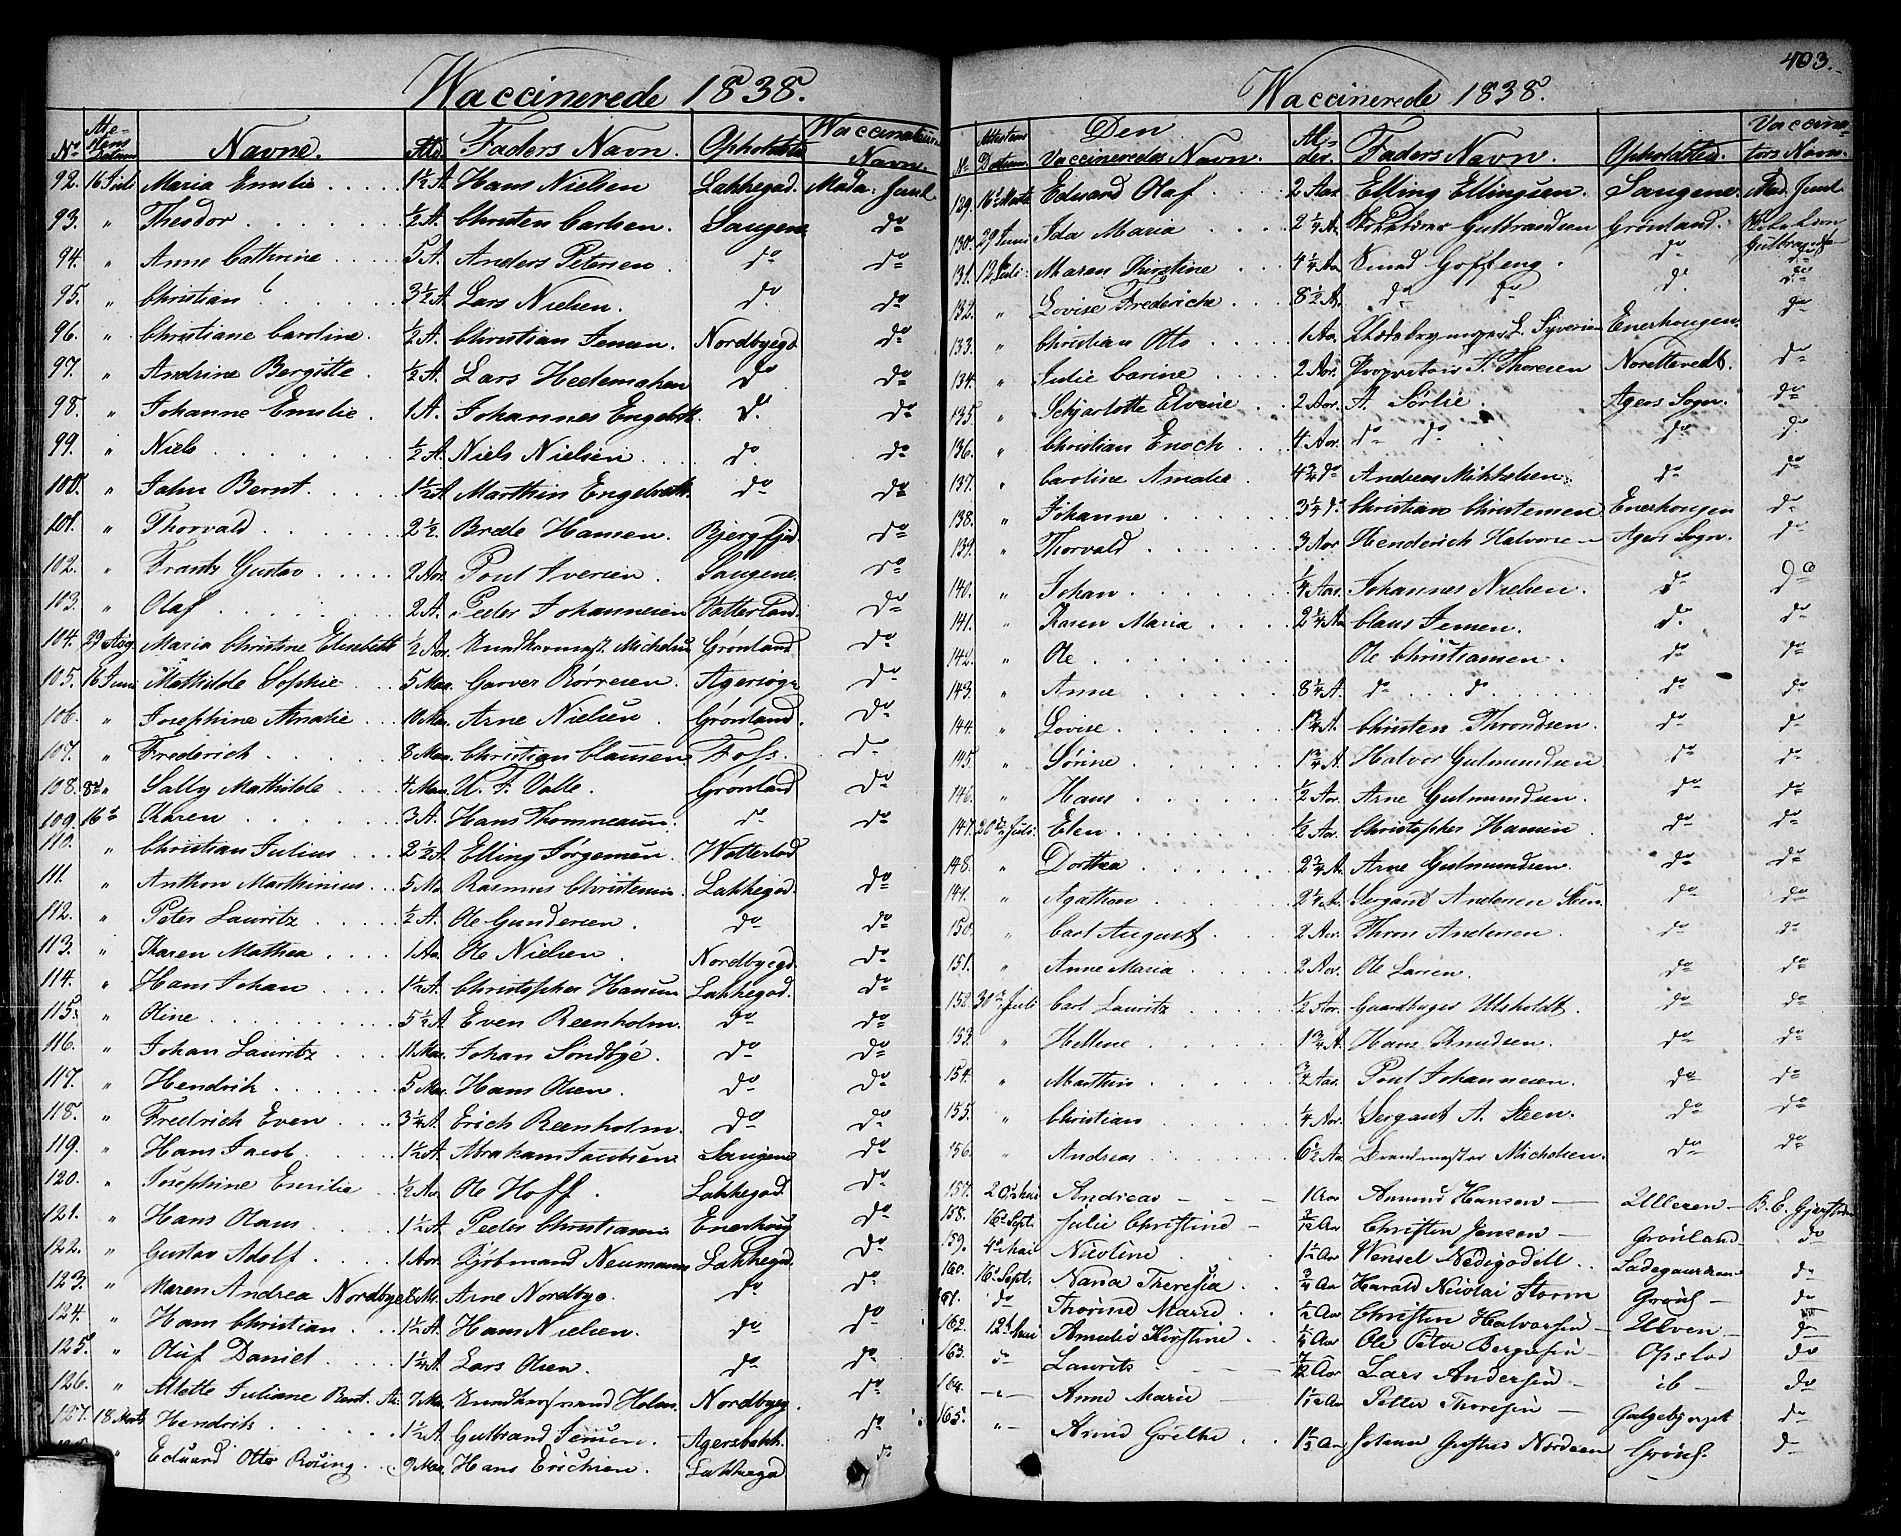 403.
Waccinerede 1838.
No Navne. Faders Navn. Navn.
92. 16 Juli Maria Emilie 1½ A. Hans Nielsen Lakkegad.
93. " Theodor ½ A. Christen Carlsen. Saugene do
94. " Anne Cathrine 5 A. Anders Petersen do do
95. " Christian 3½ A. Lars Nielsen. do do
96. " Christiane Caroline. ½ A. Christian Jensen. Nordbyegd do
97. " Andrine Bergitte. ½ A. Lars Hedemoken do do
98. " Johanne Emilie. 1 A. Johannes do do
99. " Niels ½ A. Niels Nielsen do do
100. " Johan Bernt. 1½ A. Marthin do do
101. " Thorvald 2½. Brede Hansen. do
102. " Frantz Gustav 2 Aar. Poul Iversen. Saugene. do
103. " Olaf 2 A. Peder Johannesen Vatterland. do
104. 29 Aug. Maria Christine Elisabeth ½ Aar. Grønland do
105. 16 Juni Mathilde Sophie 5 Maa. Garver do
106. " Josephine Amalie 10 Maa. Arne Nielsen. Grønland. do
107. " Frederich 8 Maa. Christian Clausen Foss. do
108. 8d " Sally Mathilde 4 Maa. Grønland do
109. 16d Karen 3 A. Hans do do
110. " Christian Julius 2½ A. Elling Jørgensen
111. " Anthon Marthinius 5 Ma. Rasmus Lakkegad. do
112. " Peter Lauritz ½ A. Ole Gundersen. do do
113. " Karen Mathea 1 Aar Ole Nielsen. Nordbyegd. do
114. " Hans Johan 1½ A. Christopher Hansen Lakkegad. do
115. " Oline 5½ A. Even Reenholm. do do
116. " Johan Lauritz 11 Maa. Johan Sondbye. do do
117. " Hendrik 5 Maa. Hans Olsen. do do
118. " Fredrich Even 3¼ A. Erich Reenholm. do do
119. " Hans Jacob 1½ A. Abraham Jacobsen Saugene do
120. " Josephine Emilie ½ Aar. Ole Hoff. Lakkegad. do
121. " Hans Olaus 1½ A. Peder Christiansen Enerhoug do
122. " Gustav Adolf 1 Aar. Kjøbmand Neumann Lakkegad. do
123. " Maren Andrea Nordbye 8 M. Arne Nordbye. do do
124. " Hans Christian 1½ A. Hans Nielsen. do do
125. " Oluf Daniel 1¼ A. Lars Olsen. do do
126. " Juliane 7 Ma. Nordbyeg. do
127. 18 Marts Hendrik 1½ A. Gulbrand Jensen. do
" Eduard Otto 9 Maa. Hans Erichsen. Lakkegad do
Waccinerede 1838.
Den
No Datum. Vaccineredes Navn. Alder. Faders Navn. Opholdsted. tors Navn.
129. 16d Marts Eduard Olaf 2 Aar. Elling Ellingsen. Saugene.
130. 29 Juni Ida Maria 2¼ A. Gulbrandsen Grønland.
131. 12 Juli Maren Kirstine 4¼ Aar Knud Goffeng. do do
132. " Lovise Frederiche 8½ A. do do do do
133. " Christian Otto 1 Aar. Enerhougen. do
134. " Julie Carine 2 Aar. Proprietair Thoresen do
135. " 2 Aar. A. Sørlie. Agers Sogn. do
136. " Christian Enoch 4 Aar. do do do do
137. " Caroline Amalie 4¾ do Andreas Mikkelsen do do
138. " Johanne 3¼ do Christian Christensen Enerhougen do
139. " Thorvald 3 Aar Henderich Agers Sogn. do
140. " Johan ¼ Aar. Johannes Nielsen. do do
141. " Karen Maria 2¼ Aa Claus Jensen. do do
142. " Ole Ole Christiansen. do do
143. " Anne 8¼ A. do do do do
144. " Lovise 1¾ A. Christen Throndsen. do do
145. " Sørine 1¾ A. Halvor Gulmundsen do do
146. " Hans ½ Aar. Arne Gulmundsen. do do
147. 20de Juli Elen ½ Aar. Christopher Hansen do do
148. " Dorthea 2¾ A. Arne Gulmundsen. do do
149. " Agathon 2¼ A. Sergand Andersen Steen do do
150. " Carl August 2 Aar. Thron Andersen. do do
151. " Anne Maria 2 Aar. Ole Larsen. do do
152. 30te Juli Carl Lauritz ½ Aar. do do
153. " Hellene 1¾ A. Hans Knudsen. do do
154. " Marthin ¾ Aar. Poul Johannesen. do do
155. " Christian ¼ Aar. Sergant A. Steen. do do
156. " Andreas 6½ Aar Brandmester Micholsen. do do
157. Andreas 1 Aar Amund Hansen Ulleren
158. 16d Sept. Julie Christine Aar Christen Jensen Grønland do
159. 4d Mai Nicoline 1½ Aar Wensel
160. 16d Sept. Nana Theresia ¾ Aar Harald Nicolai Storm do
161. do Thorine Marie ½ Aar Christen Halvorsen Ulven do
162. 12t Mai Amalie Kirstine ¼ Aar Ole Peter Opslod do
163. do Laurits Aar Lars Andersen ib do
164. Anne Marie Aar Petter Thoresen Galgebjerget do
165. " 1½ Aar Johan do